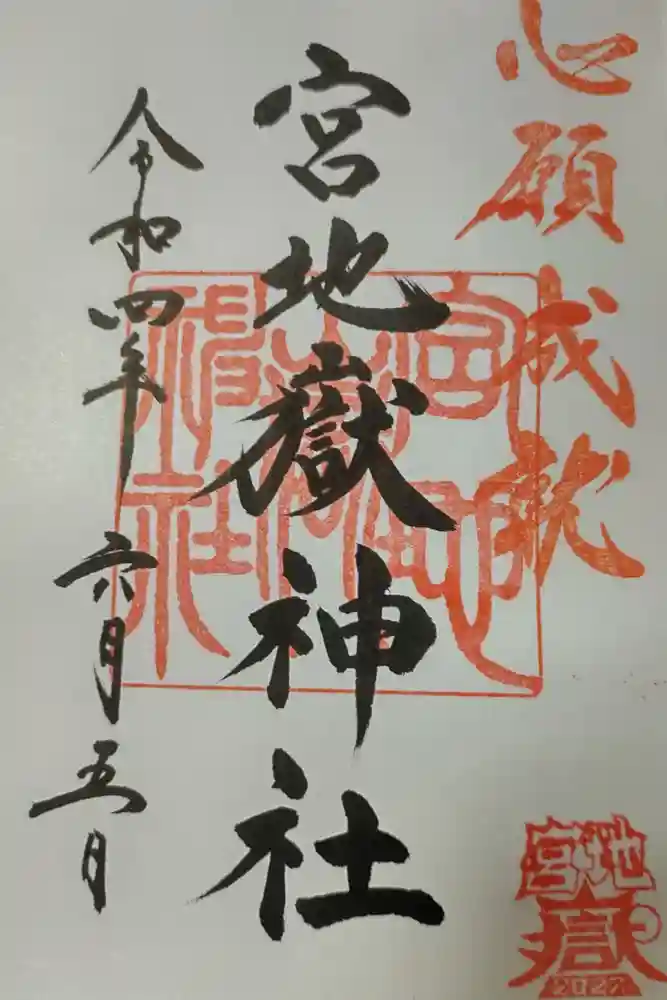 心願成就
宮地嶽神社
令和四年六月五日
宮地嶽神社
宮地
嶽
2022